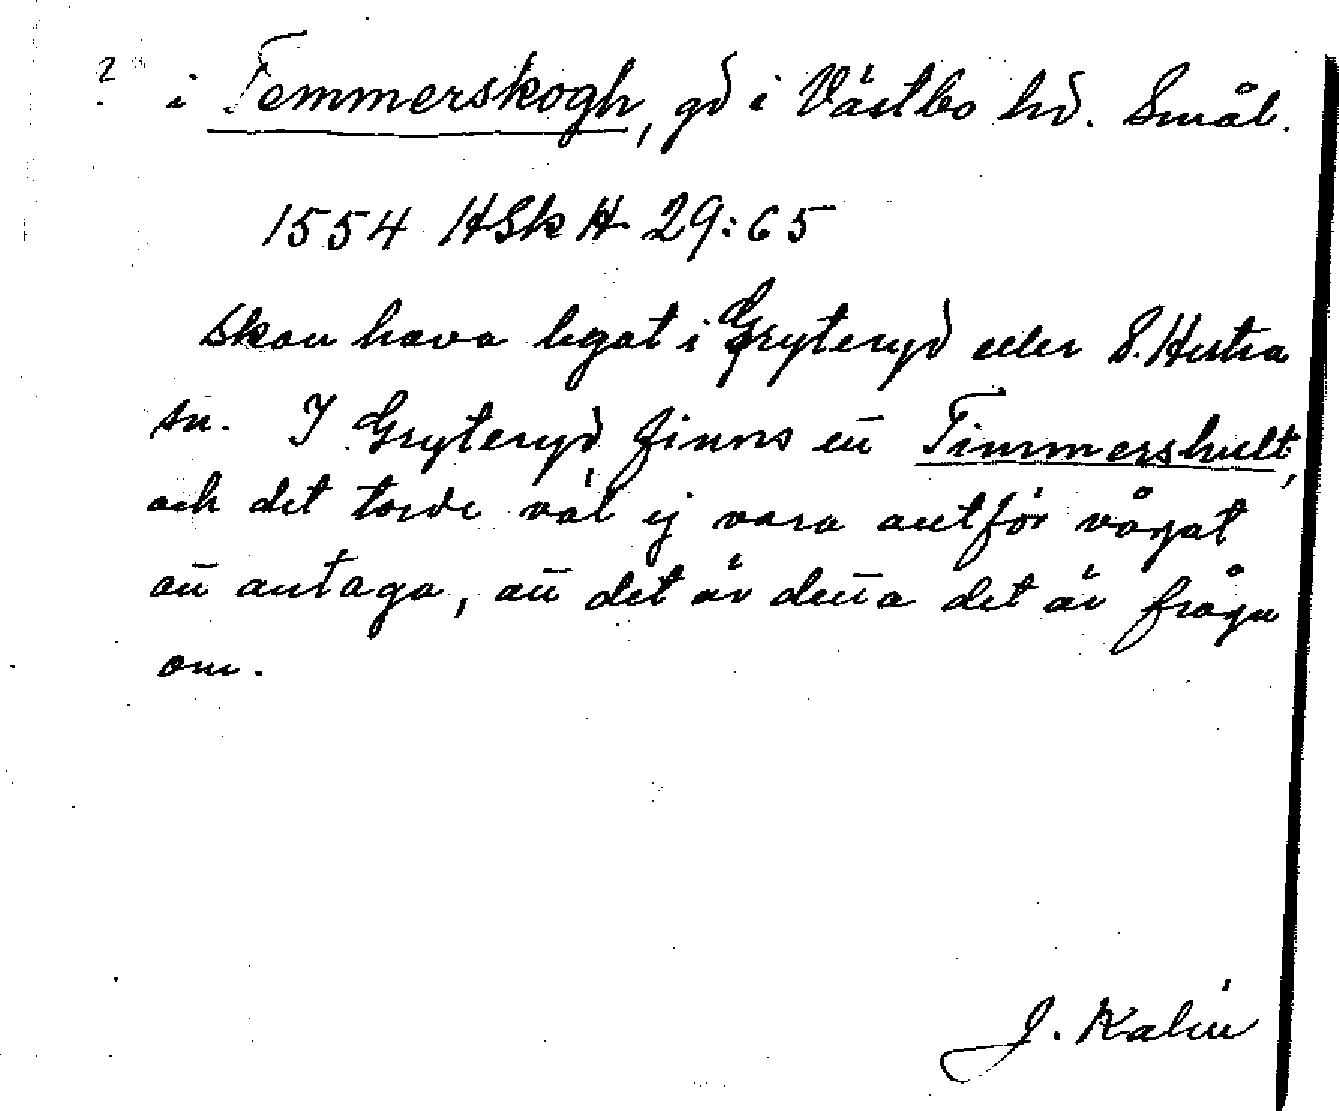 ? i Temmerskogh, gd i Västbo hd. Smål.
1554 HSkH 29:65
Skau hava legat i Gryteryd eller S. Hestra
sn. I Gryteryd finns en̄ Timmershult,
och det torde väl ej vara alltför vågat
an̄ antaga, an̄ det är den̄a det är fråga
om.
J. Kalén